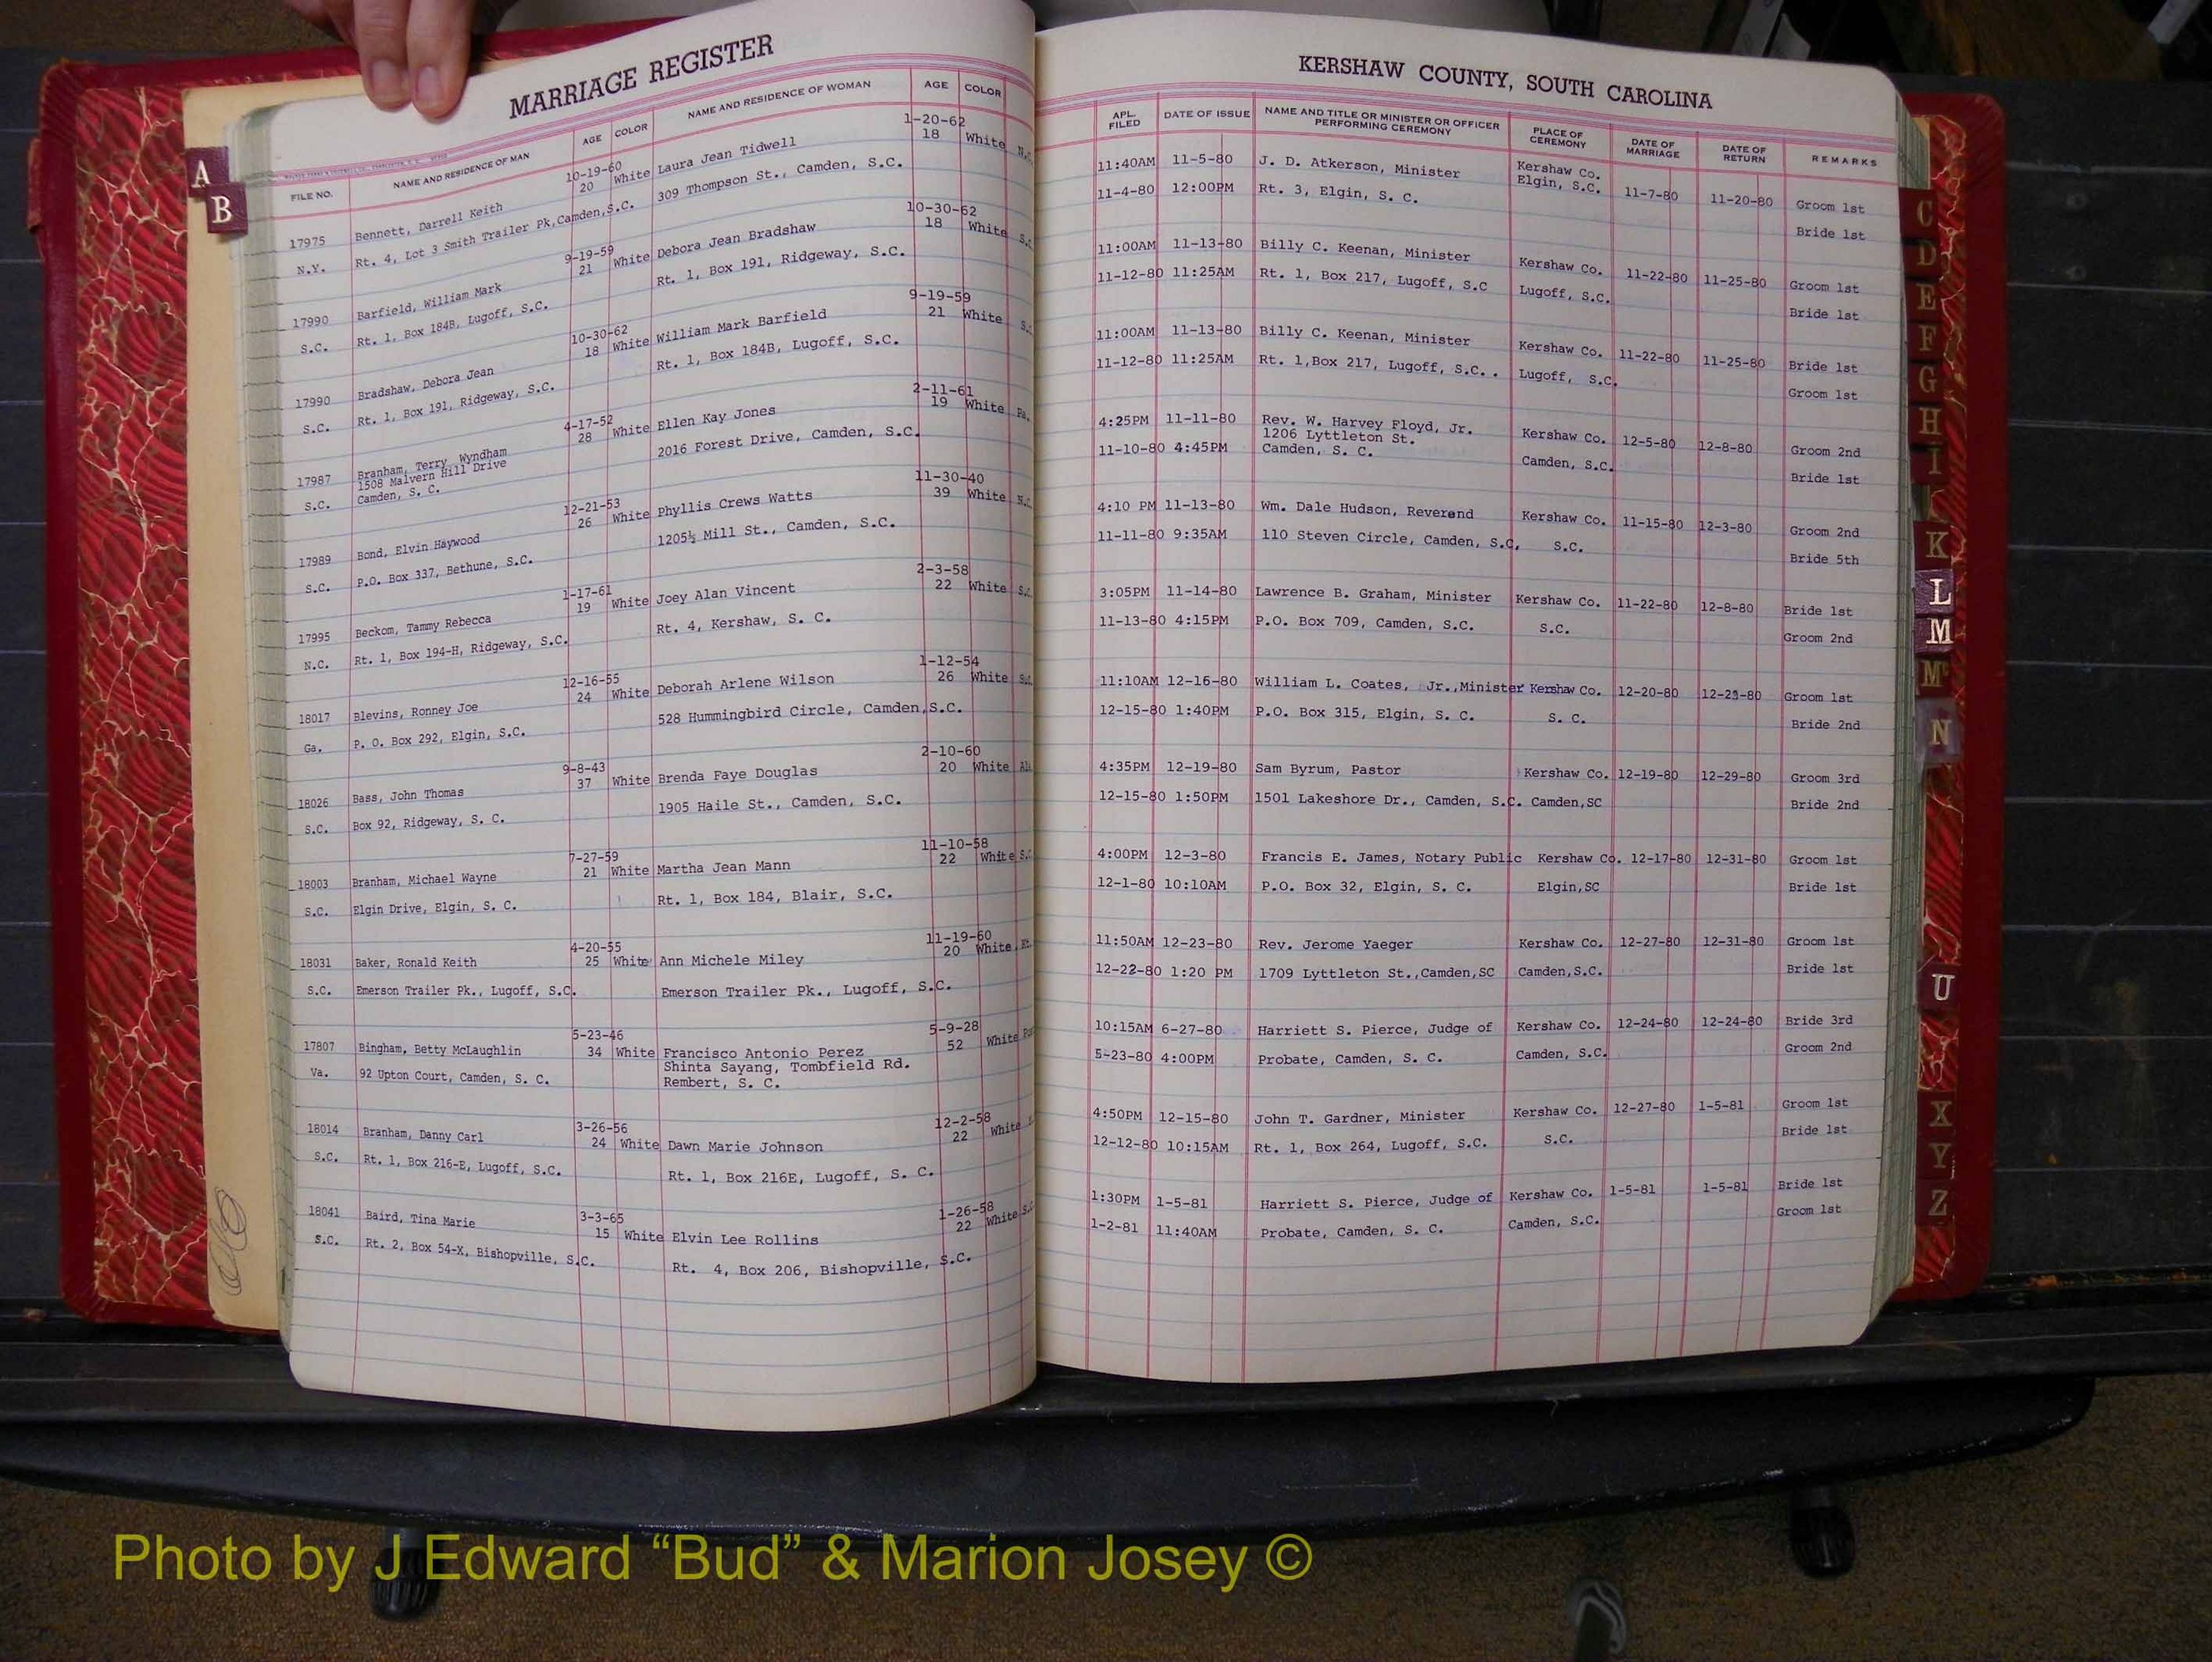 MARRIAGE REGISTER
FILE NO. NAME AND RESIDENCE OF MAN AGE COLOR NAME AND RESIDENCE OF WOMAN AGE COLOR
10-19-60 1-20-62
17975 Bennett, Darrell Keith 20 White Laura Jean Tidwell 18 White N.C.
N.Y. Rt. 4, Lot 3 Smith Trailer Pk,Camden,S.C. 309 Thompson St., Camden, S.C.
9-19-59 10-30-62
17990 Barfield, William Mark 21 White Debora Jean Bradshaw 18 White S.C.
S.C. Rt. 1, Box 184B, Lugoff, S.C. Rt. 1, Box 191, Ridgeway, S.C.
10-30-62 9-19-59
17990 Bradshaw, Debora Jean 18 White William Mark Barfield 21 White S.
S.C. Rt. 1, Box 191, Ridgeway, S.C. Rt. 1, Box 184B, Lugoff, S.C.
4-17-52 2-11-61
17987 Branham, Terry Wyndham 28 White Ellen Kay Jones 19 White Pa.
1508 Malvern Hill Drive
S.C. Camden, S. C. 2016 Forest Drive, Camden, S.C.
12-21-53 11-30-40
17989 Bond, Elvin Haywood 26 White Phyllis Crews Watts 39 White N.C.
S.C. P.O. Box 337, Bethune, S.C. 1205½ Mill St., Camden, S.C.
1-17-61 2-3-58
17995 Beckom, Tammy Rebecca 19 White Joey Alan Vincent 22 White S.C.
N.C. Rt. 1, Box 194-H, Ridgeway, S.C. Rt. 4, Kershaw, S. C.
12-16-55 1-12-54
18017 Blevins, Ronney Joe 24 White Deborah Arlene Wilson 26 White S.C.
Ga. P. O. Box 292, Elgin, S.C. 528 Hummingbird Circle, Camden,S.C.
9-8-43 2-10-60
18026 Bass, John Thomas 37 White Brenda Faye Douglas 20 White Al
S.C. Box 92, Ridgeway, S. C. 1905 Haile St., Camden, S.C.
7-27-59 11-10-58
18003 Branham, Michael Wayne 21 White Martha Jean Mann 22 White S.C.
S.C. Elgin Drive, Elgin, S. C. Rt. 1, Box 184, Blair, S.C.
4-20-55 11-19-60
18031 Baker, Ronald Keith 25 White Ann Michele Miley 20 White
S.C. Emerson Trailer Pk., Lugoff, S.C. Emerson Trailer Pk., Lugoff, S.C.
5-23-46 5-9-28
17807 Bingham, Betty McLaughlin 34 White Francisco Antonio Perez 52 White
Shinta Sayang, Tombfield Rd.
Va. 92 Upton Court, Camden, S. C. Rembert, S. C.
3-26-56 12-2-58
18014 Branham, Danny Carl 24 White Dawn Marie Johnson 22 White
S.C. Rt. 1, Box 216-E, Lugoff, S.C. Rt. 1, Box 216E, Lugoff, S. C.
3-3-65 1-26-58
18041 Baird, Tina Marie 15 White Elvin Lee Rollins 22 White S.C.
S.C. Rt. 2, Box 54-X, Bishopville, S.C. Rt. 4, Box 206, Bishopville, S.C.
KERSHAW COUNTY, SOUTH CAROLINA
APL. FILED DATE OF ISSUE NAME AND TITLE OR MINISTER OR OFFICER PERFORMING CEREMONY PLACE OF CEREMONY DATE OF MARRIAGE DATE OF RETURN REMARKS
11:40AM 11-5-80 J. D. Atkerson, Minister Kershaw Co.
11-4-80 12:00PM Rt. 3, Elgin, S. C. Elgin, S.C. 11-7-80 11-20-80 Groom 1st
Bride 1st
11:00AM 11-13-80 Billy C. Keenan, Minister Kershaw Co. 11-22-80 11-25-80 Groom 1st
11-12-80 11:25AM Rt. 1, Box 217, Lugoff, S.C Lugoff, S.C. Bride 1st
11:00AM 11-13-80 Billy C. Keenan, Minister Kershaw Co. 11-22-80 11-25-80 Bride 1st
11-12-80 11:25AM Rt. 1,Box 217, Lugoff, S.C. . Lugoff, S.C. Groom 1st
4:25PM 11-11-80 Rev. W. Harvey Floyd, Jr. Kershaw Co. 12-5-80 12-8-80 Groom 2nd
1206 Lyttleton St.
11-10-80 4:45PM Camden, S. C. Camden, S.C. Bride 1st
4:10 PM 11-13-80 Wm. Dale Hudson, Reverend Kershaw Co. 11-15-80 12-3-80 Groom 2nd
11-11-80 9:35AM 110 Steven Circle, Camden, S.C, S.C. Bride 5th
3:05PM 11-14-80 Lawrence B. Graham, Minister Kershaw Co. 11-22-80 12-8-80 Bride 1st
11-13-80 4:15PM P.O. Box 709, Camden, S.C. S.C. Groom 2nd
11:10AM 12-16-80 William L. Coates, Jr.,Minister Kershaw Co. 12-20-80 Groom 1st
12-15-80 1:40PM P.O. Box 315, Elgin, S. C. S. C. Bride 2nd
4:35PM 12-19-80 Sam Byrum, Pastor Kershaw Co. 12-19-80 12-29-80 Groom 3rd
12-15-80 1:50PM 1501 Lakeshore Dr., Camden, S.C. Camden,SC Bride 2nd
4:00PM 12-3-80 Francis E. James, Notary Public Kershaw Co. 12-17-80 12-31-80 Groom 1st
12-1-80 10:10AM P.O. Box 32, Elgin, S. C. Elgin,SC Bride 1st
11:50AM 12-23-80 Rev. Jerome Yaeger Kershaw Co. 12-27-80 12-31-80 Groom 1st
12-22-80 1:20 PM 1709 Lyttleton St.,Camden,SC Camden,S.C. Bride 1st
10:15AM 6-27-80 Harriett S. Pierce, Judge of Kershaw Co. 12-24-80 12-24-80 Bride 3rd
5-23-80 4:00PM Probate, Camden, S. C. Camden, S.C. Groom 2nd
4:50PM 12-15-80 John T. Gardner, Minister Kershaw Co. 12-27-80 1-5-81 Groom 1st
12-12-80 10:15AM Rt. 1, Box 264, Lugoff, S.C. S.C. Bride 1st
1:30PM 1-5-81 Harriett S. Pierce, Judge of Kershaw Co. 1-5-81 1-5-81 Bride 1st
1-2-81 11:40AM Probate, Camden, S. C. Camden, S.C. Groom 1st
A
B
C
D
E
F
G
H
I
K
L
M
Mc
N
U
X
Y
Z
Photo by J Edward “Bud” & Marion Josey ©